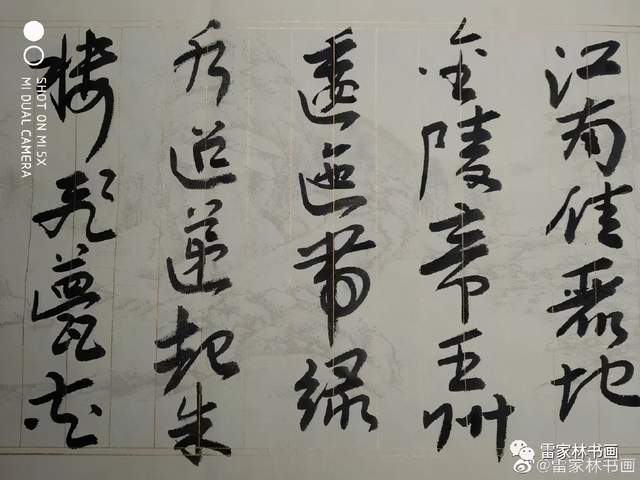 江南佳麗地
金陵帝王州
逶迤帶綠
水迢遞起朱
樓飛甍夾
SHOT ON MI 5X
MI DUAL CAMERA
雷家林书画
@雷家林书画